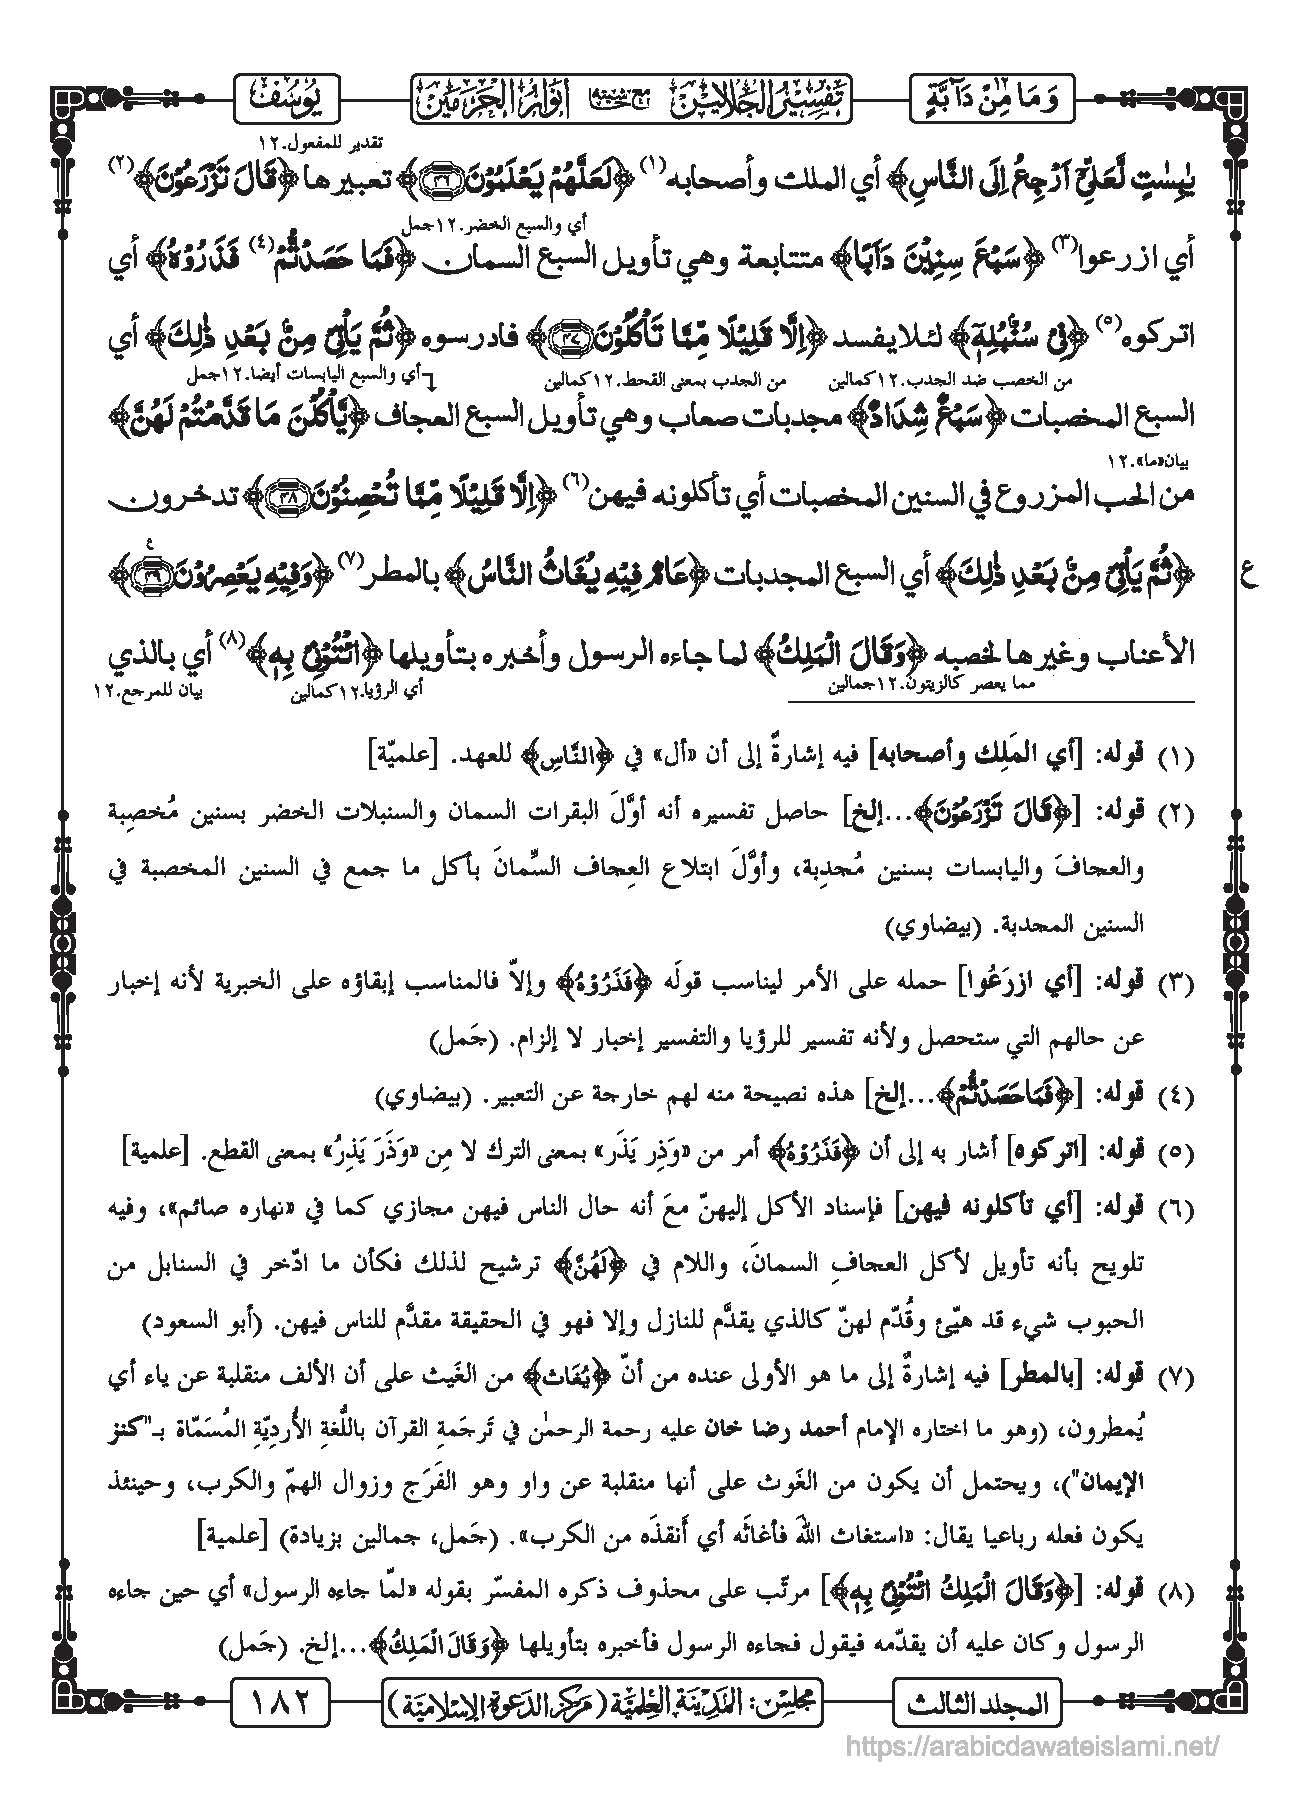 وَمَا مِنْ دَآبَّةٍ
تفسير الجلالين مع حاشيته أنوار الحرمين
يُوسُف
تقدير للمفعول.١٢
يٰبِسٰتٍ لَّعَلِّيْۤ اَرْجِعُ اِلَى النَّاسِ﴾ أي الملك وأصحابه(١) ﴿لَعَلَّهُمْ يَعْلَمُوْنَ ﴿٤٦﴾﴾ تعبيرها ﴿قَالَ تَزْرَعُوْنَ﴾(٢)
أي والسبع الخضر.١٢جمل
أي ازرعوا(٣) ﴿سَبْعَ سِنِيْنَ دَاَبًا﴾ متتابعة وهي تأويل السبع السمان ﴿فَمَا حَصَدْتُّمْ(٤) فَذَرُوْهُ﴾ أي
اتركوه(٥) ﴿فِيْ سُنْۢبُلِهٖۤ﴾ لئلا يفسد ﴿اِلَّا قَلِيْلًا مِّمَّا تَاْكُلُوْنَ ﴿٤٧﴾﴾ فادرسوه ﴿ثُمَّ يَاْتِيْ مِنْۢ بَعْدِ ذٰلِكَ﴾ أي
من الخصب ضد الجدب.١٢كمالين من الجدب بمعنى القحط.١٢كمالين أي والسبع اليابسات أيضا.١٢جمل
السبع المخصبات ﴿سَبْعٌ شِدَادٌ﴾ مجدبات صعاب وهي تأويل السبع العجاف ﴿يَّاْكُلْنَ مَا قَدَّمْتُمْ لَهُنَّ﴾
بيان«ما».١٢
من الحب المزروع في السنين المخصبات أي تأكلونه فيهن(٦) ﴿اِلَّا قَلِيْلًا مِّمَّا تُحْصِنُوْنَ ﴿٤٨﴾﴾ تدخرون
﴿ثُمَّ يَاْتِيْ مِنْۢ بَعْدِ ذٰلِكَ﴾ أي السبع المجدبات ﴿عَامٌ فِيْهِ يُغَاثُ النَّاسُ﴾ بالمطر(٧) ﴿وَفِيْهِ يَعْصِرُوْنَ ﴿٤٩﴾﴾
ع
الأعناب وغيرها لخصبه ﴿وَقَالَ الْمَلِكُ﴾ لما جاءه الرسول وأخبره بتأويلها ﴿ائْتُوْنِيْ بِهٖ﴾(٨) أي بالذي
مما يعصر كالزيتون.١٢جمالين أي الرؤيا.١٢كمالين بيان للمرجع.١٢
(١) قوله: [أي المَلِك وأصحابه] فيه إشارةٌ إلى أن «أل» في ﴿النَّاسِ﴾ للعهد. [علميّة]
(٢) قوله: [﴿قَالَ تَزْرَعُوْنَ﴾...إلخ] حاصل تفسيره أنه أوَّلَ البقرات السمان والسنبلات الخضر بسنين مُخصِبة
والعجافَ واليابسات بسنين مُجدِبة، وأوَّلَ ابتلاع العِجاف السِّمانَ بأكل ما جمع في السنين المخصبة في
السنين المجدبة. (بيضاوي)
(٣) قوله: [أي ازرَعُوا] حمله على الأمر ليناسب قولَه ﴿فَذَرُوْهُ﴾ وإلاّ فالمناسب إبقاؤه على الخبرية لأنه إخبار
عن حالهم التي ستحصل ولأنه تفسير للرؤيا والتفسير إخبار لا إلزام. (جَمل)
(٤) قوله: [﴿فَمَا حَصَدْتُّمْ﴾...إلخ] هذه نصيحة منه لهم خارجة عن التعبير. (بيضاوي)
(٥) قوله: [اتركوه] أشار به إلى أن ﴿فَذَرُوْهُ﴾ أمر من «وَذِر يَذَر» بمعنى الترك لا مِن «وَذَرَ يَذِرُ» بمعنى القطع. [علمية]
(٦) قوله: [أي تأكلونه فيهن] فإسناد الأكل إليهنّ معَ أنه حال الناس فيهن مجازي كما في «نهاره صائم»، وفيه
تلويح بأنه تأويل لأكل العجافِ السمانَ، واللام في ﴿لَهُنَّ﴾ ترشيح لذلك فكأن ما ادّخر في السنابل من
الحبوب شيء قد هيّئ وقُدّم لهنّ كالذي يقدَّم للنازل وإلا فهو في الحقيقة مقدَّم للناس فيهن. (أبو السعود)
(٧) قوله: [بالمطر] فيه إشارةٌ إلى ما هو الأولى عنده من أنّ ﴿يُغَاث﴾ من الغَيث على أن الألف منقلبة عن ياء أي
يُمطرون، (وهو ما اختاره الإمام أحمد رضا خان عليه رحمة الرحمٰن في تَرجَمةِ القرآن باللُّغةِ الأُرديّةِ المُسَمّاة بـ"كنز
الإيمان")، ويحتمل أن يكون من الغَوث على أنها منقلبة عن واو وهو الفَرَج وزوال الهمّ والكرب، وحينئذ
يكون فعله رباعيا يقال: «استغاث اللهَ فأغاثَه أي أنقذَه من الكرب». (جَمل، جمالين بزيادة) [علمية]
(٨) قوله: [﴿وَقَالَ الْمَلِكُ ائْتُوْنِيْ بِهٖ﴾] مرتّب على محذوف ذكره المفسّر بقوله «لمّا جاءه الرسول» أي حين جاءه
الرسول وكان عليه أن يقدّمه فيقول فجاءه الرسول فأخبره بتأويلها ﴿وَقَالَ الْمَلِكُ﴾...إلخ. (جَمل)
المجلد الثالث
مجلس: المدينة العلمية (مركز الدعوة الإسلامية)
١٨٢
https://arabicdawateislami.net/